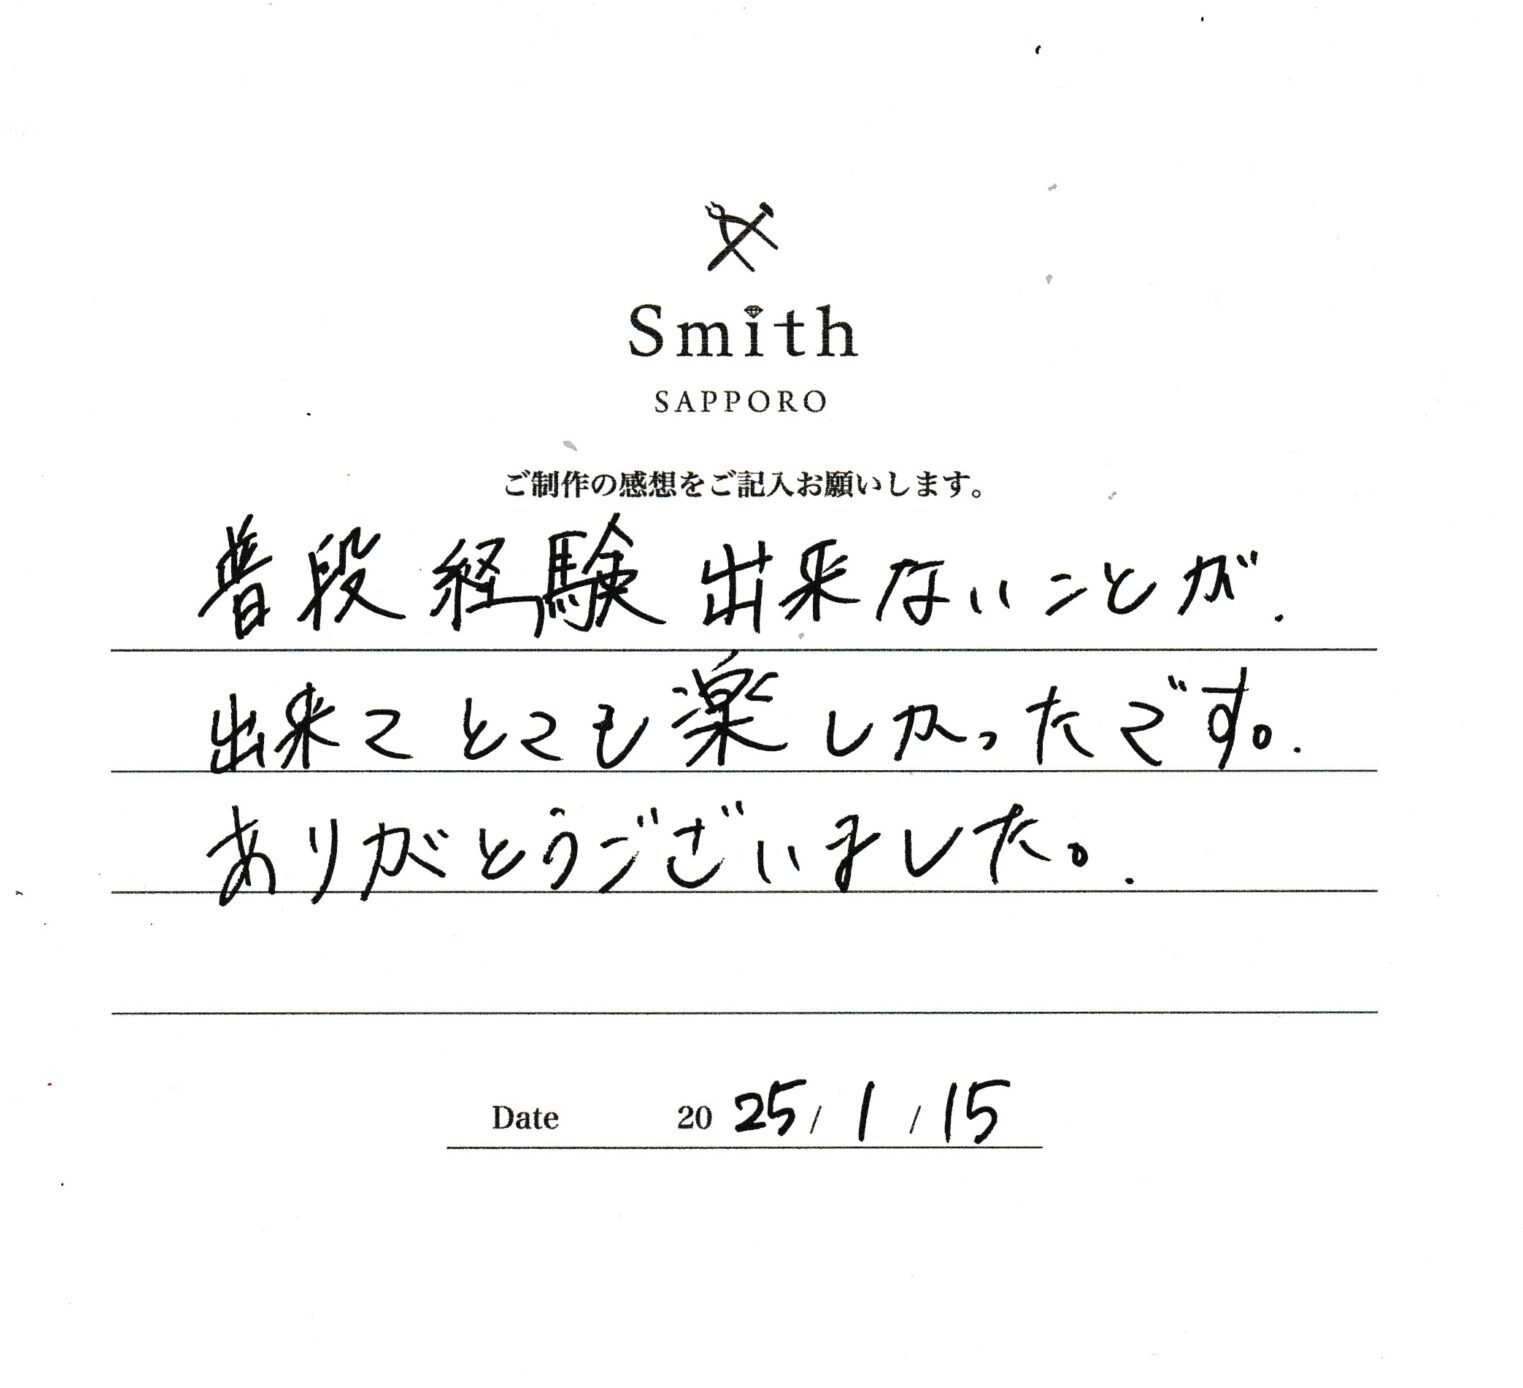 Smith
SAPPORO
ご制作の感想をご記入お願いします。
普段経験出来ないことが
出来てとても楽しかったです。
ありがとうございました。
Date 2025/1/15